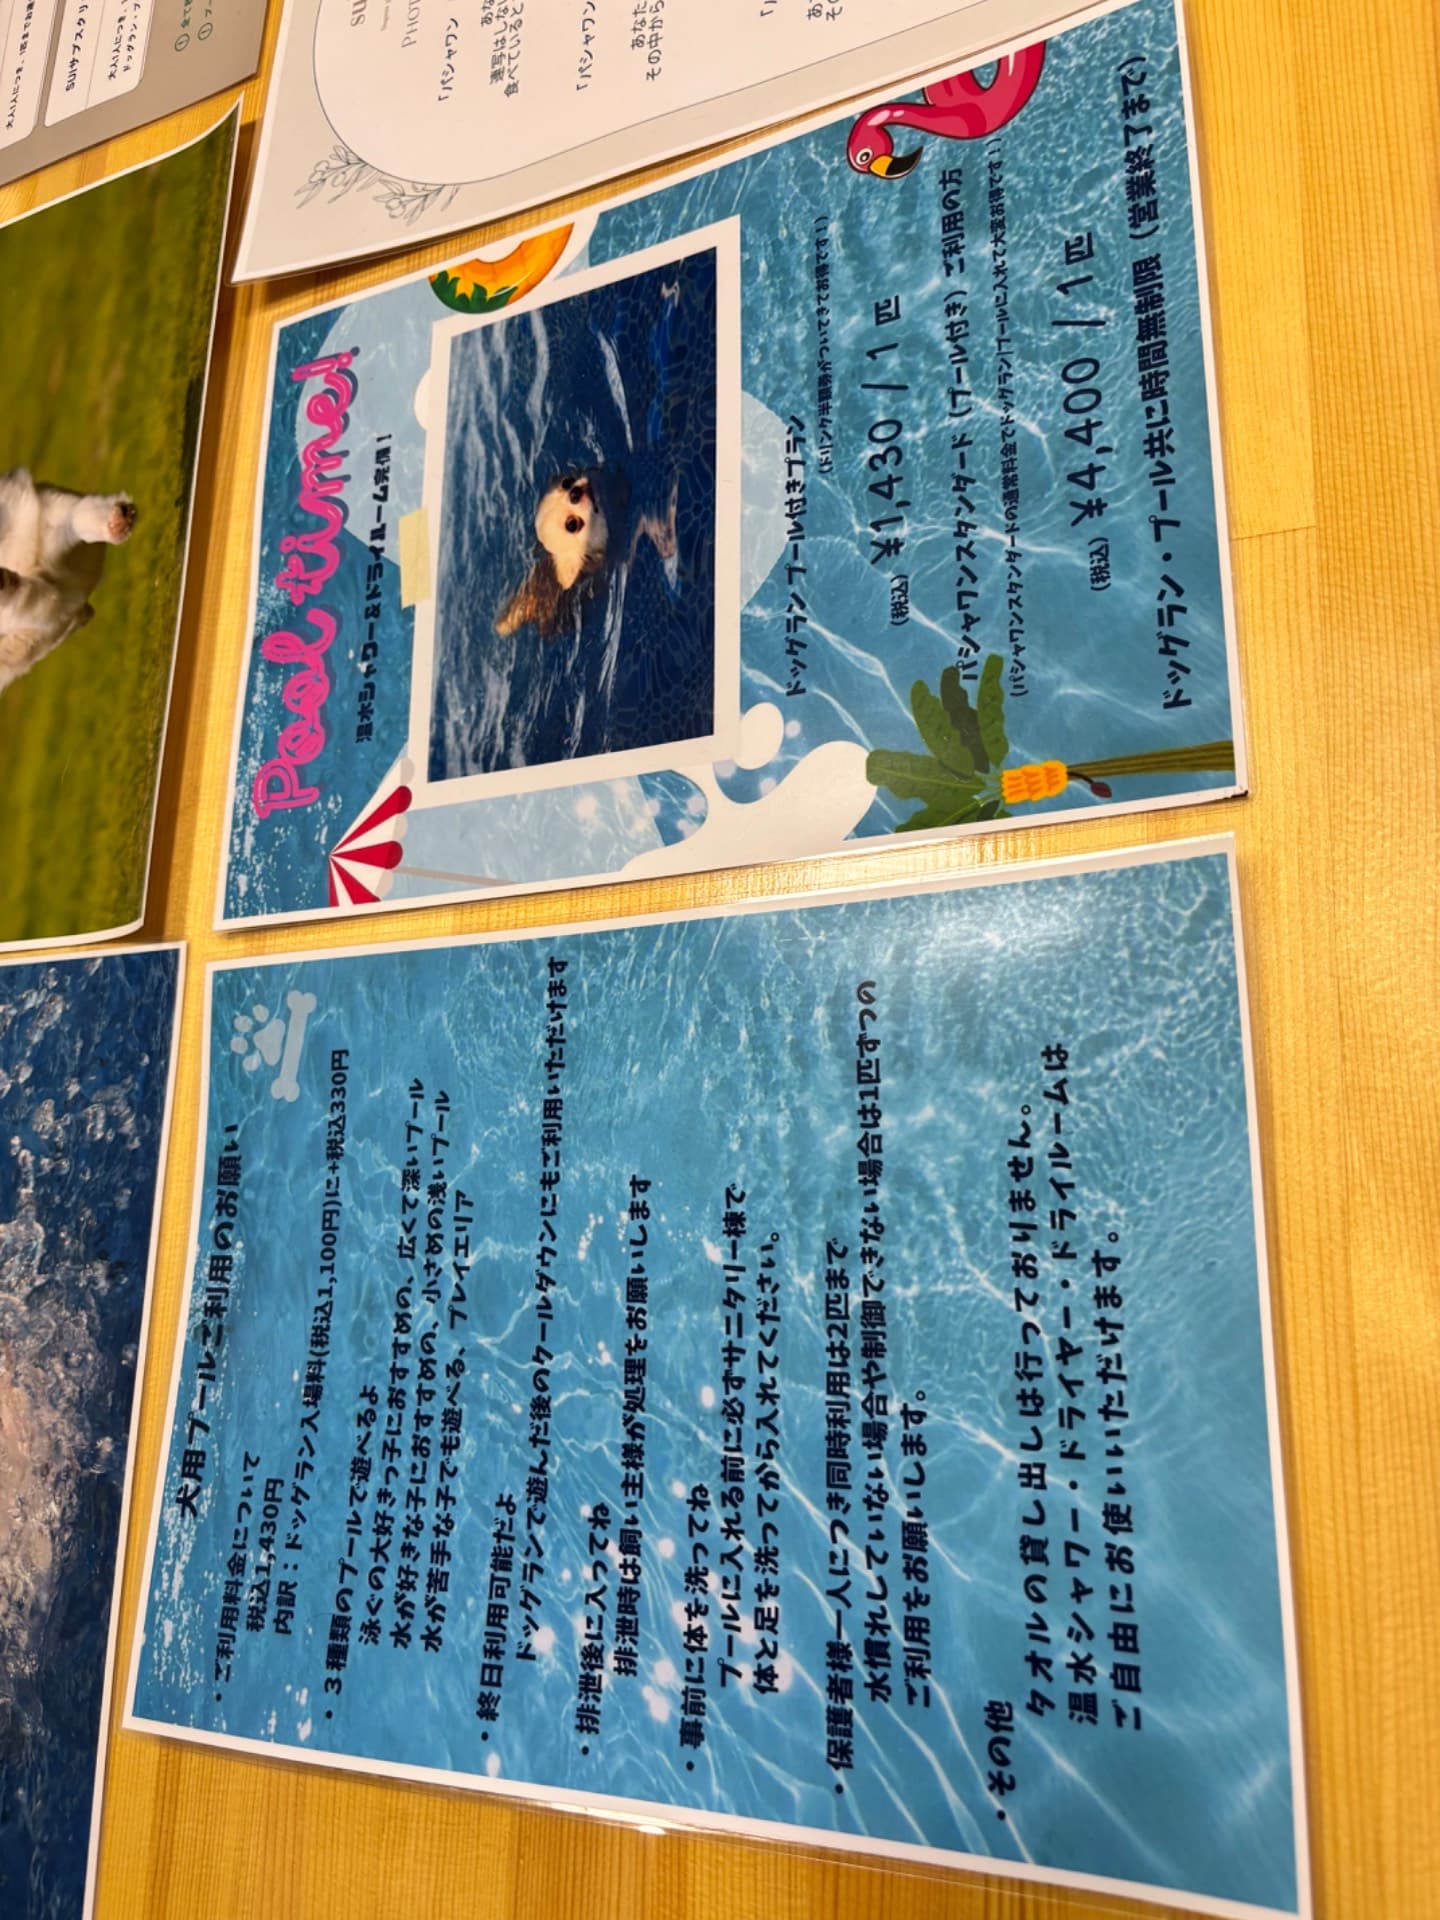 Pool time!
温水シャワー&ドライルーム完備!
ドッグランプール付きプラン
(ドリンク半額券がついてきてお得です!)
(税込) ¥1,430 / 1匹
パシャワンスタンダード(プール付き)ご利用の方
(パシャワンスタンダードの通常料金でドッグラン/プールに入れて大変お得です!)
(税込) ¥4,400 / 1匹
ドッグラン・プール共に時間無制限(営業終了まで)
犬用プールご利用のお願い
・ご利用料金について
税込1,430円
内訳:ドッグラン入場料(税込1,100円)に+税込330円
・3種類のプールで遊べるよ
泳ぐの大好きっ子におすすめの、広くて深いプール
水が好きな子におすすめの、小さめの浅いプール
水が苦手な子でも遊べる、プレイエリア
・終日利用可能だよ
ドッグランで遊んだ後のクールダウンにもご利用いただけます
・排泄後に入ってね
排泄時は飼い主様が処理をお願いします
・事前に体を洗ってね
プールに入れる前に必ずサニタリー棟で
体と足を洗ってから入れてください。
・保護者様一人につき同時利用は2匹まで
水慣れしていない場合や制御できない場合は1匹ずつの
ご利用をお願いします。
・その他
タオルの貸し出しは行っておりません。
温水シャワー・ドライヤー・ドライルームは
ご自由にお使いいただけます。